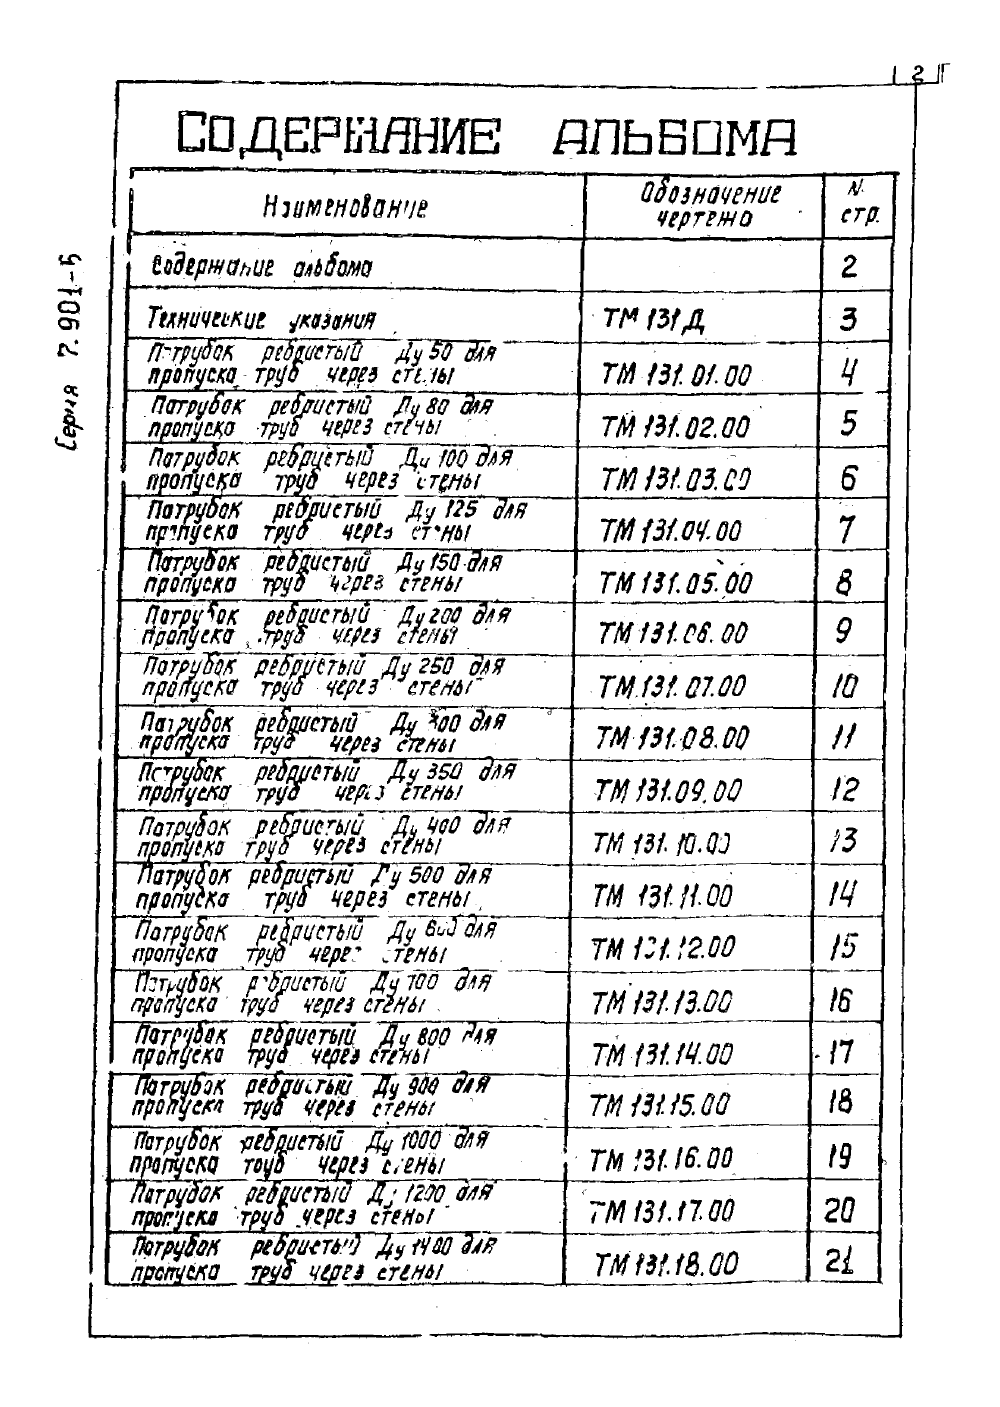 2
СОДЕРЖАНИЕ АЛЬБОМА
Серия 7.901-5
Наименование
Обозначение
чертежа
N
стр.
Содержание альбома
2
Технические указания
ТМ 131 Д
3
Патрубок ребристый Ду 50 для
пропуска труб через стены
ТМ 131.01.00
4
Патрубок ребристый Ду 80 для
пропуска труб через стены
ТМ 131.02.00
5
Патрубок ребристый Ду 100 для
пропуска труб через стены
ТМ 131.03.00
6
Патрубок ребристый Ду 125 для
пропуска труб через стены
ТМ 131.04.00
7
Патрубок ребристый Ду 150 для
пропуска труб через стены
ТМ 131.05.00
8
Патрубок ребристый Ду 200 для
пропуска труб через стены
ТМ 131.06.00
9
Патрубок ребристый Ду 250 для
пропуска труб через стены
ТМ.131.07.00
10
Патрубок ребристый Ду 300 для
пропуска труб через стены
ТМ 131.08.00
11
Патрубок ребристый Ду 350 для
пропуска труб через стены
ТМ 131.09.00
12
Патрубок ребристый Ду 400 для
пропуска труб через стены
ТМ 131.10.00
13
Патрубок ребристый Ду 500 для
пропуска труб через стены
ТМ 131.11.00
14
Патрубок ребристый Ду 600 для
пропуска труб через стены
ТМ 131.12.00
15
Патрубок ребристый Ду 700 для
пропуска труб через стены
ТМ 131.13.00
16
Патрубок ребристый Ду 800 для
пропуска труб через стены
ТМ 131.14.00
17
Патрубок ребристый Ду 900 для
пропуска труб через стены
ТМ 131.15.00
18
Патрубок ребристый Ду 1000 для
пропуска труб через стены
ТМ 131.16.00
19
Патрубок ребристый Ду 1200 для
пропуска труб через стены
ТМ 131.17.00
20
Патрубок ребристый Ду 1400 для
пропуска труб через стены
ТМ 131.18.00
21